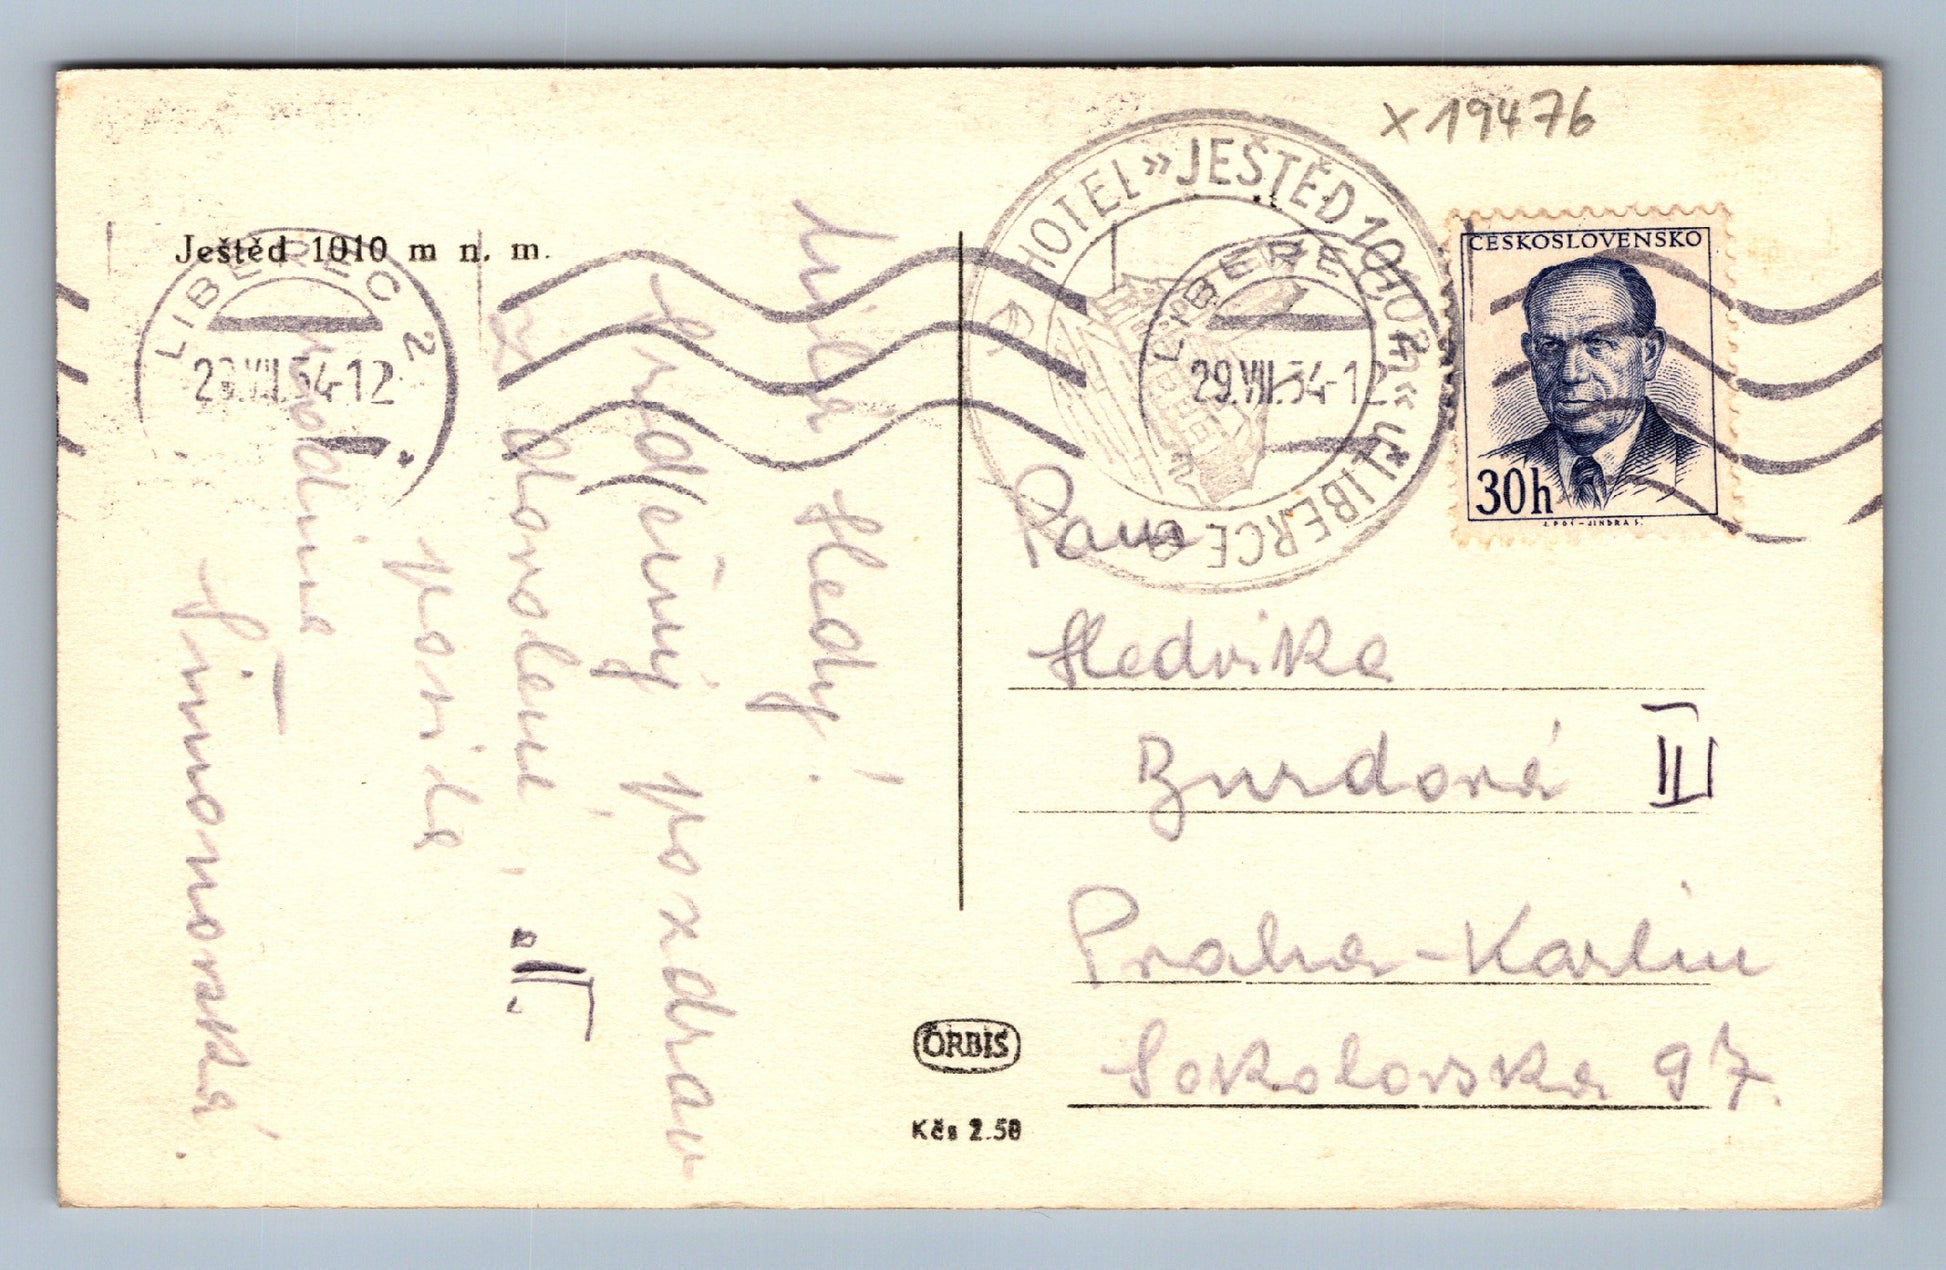 x 19476
Ještěd 1010 m n. m.
LIBEREC 2
29.VII.54-12
HOTEL »JEŠTĚD 1010 m« u LIBERCE
LIBEREC
29.VII.54-12
ČESKOSLOVENSKO
30h
Milá Hedy!
Srdečný pozdrav
z dovolené,
posílá
rodina
Paní
Hedvika
III
Praha-Karlín
Sokolovska 97.
ORBIS
Kčs 2.50